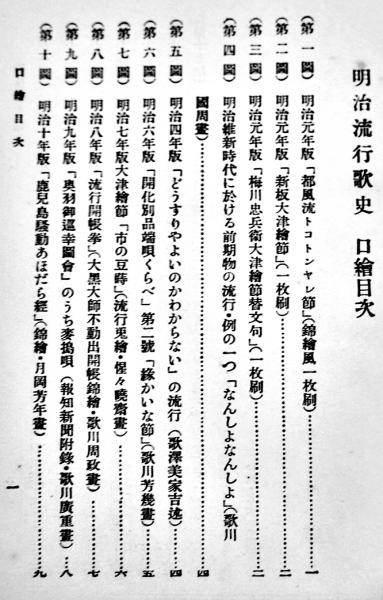 明治流行歌史 口繪目次
(第一圖) 明治元年版「都風流トコトンヤレ節」(錦繪風一枚刷)……一
(第二圖) 明治元年版「新板大津繪節」(一枚刷)……二
(第三圖) 明治元年版「梅川忠兵衞大津繪節替文句」(一枚刷)……二
(第四圖) 明治維新時代に於ける前期物の流行・例の一つ「なんしよなんしよ」(歌川
國周畫)……四
(第五圖) 明治四年版「どうすりやよいのかわからない」の流行(歌澤美家吉述)……四
(第六圖) 明治六年版「開化別品端唄くらべ」第二號「緣かいな節」(歌川芳幾畫)……五
(第七圖) 明治七年版大津繪節「市の豆蒔」(流行兎繪・惺々曉齋畫)……六
(第八圖) 明治八年版「流行開帳拳」(大黑大師不動出開帳錦繪・歌川周政畫)……七
(第九圖) 明治九年版「奧羽御巡幸圖會」のうち麥搗唄(報知新聞附錄・歌川廣重畫)……八
(第十圖) 明治十年版「鹿兒島騷動あほだら經」(錦繪・月岡芳年畫)……九
口繪目次
一